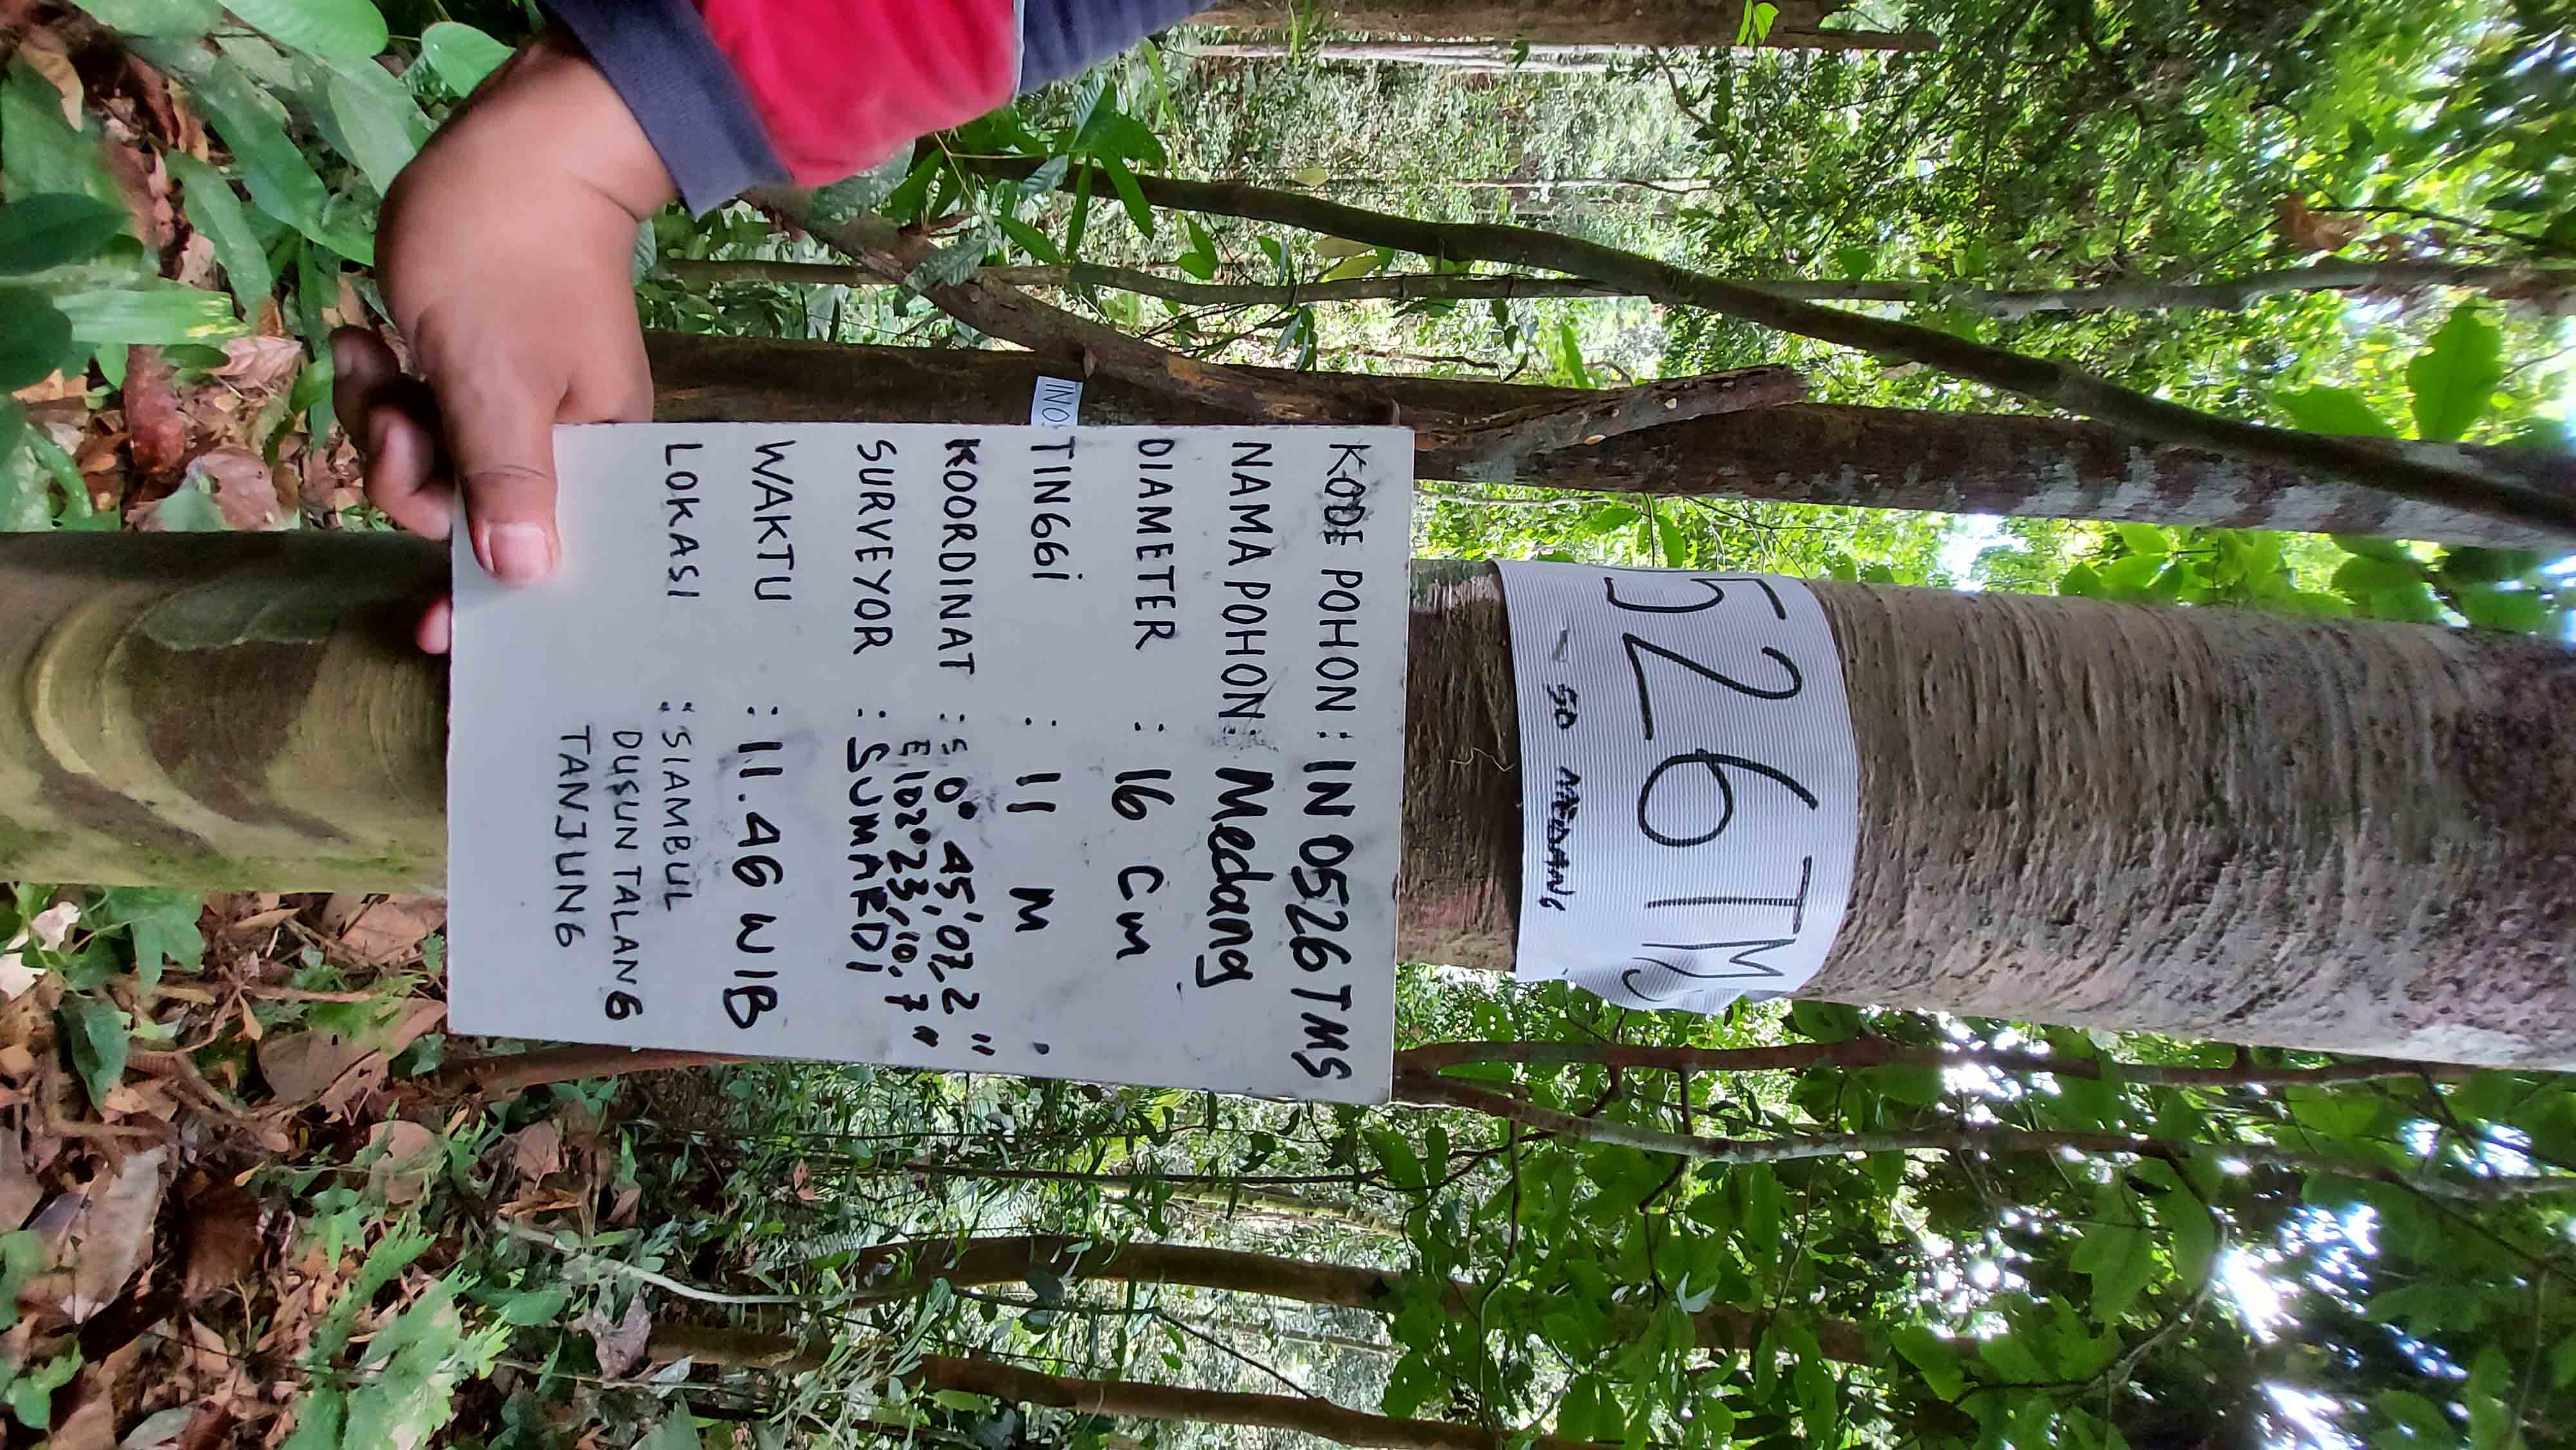 526TMS
50 MEDANG
KODE POHON : IN 0526 TMS
NAMA POHON: Medang
DIAMETER : 16 Cm
INO
TINGGI : 11 M
KOORDINAT : S 0° 45,'07,2"
E 102° 23,'10,7"
SURVEYOR : SUMARDI
WAKTU : 11.46 WIB
LOKASI : SIAMBUL
DUSUN TALANG
TANJUNG